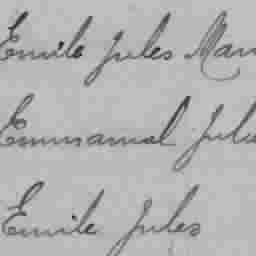 Emile Jules Mar
Emmanuel Jules
Emile Jules